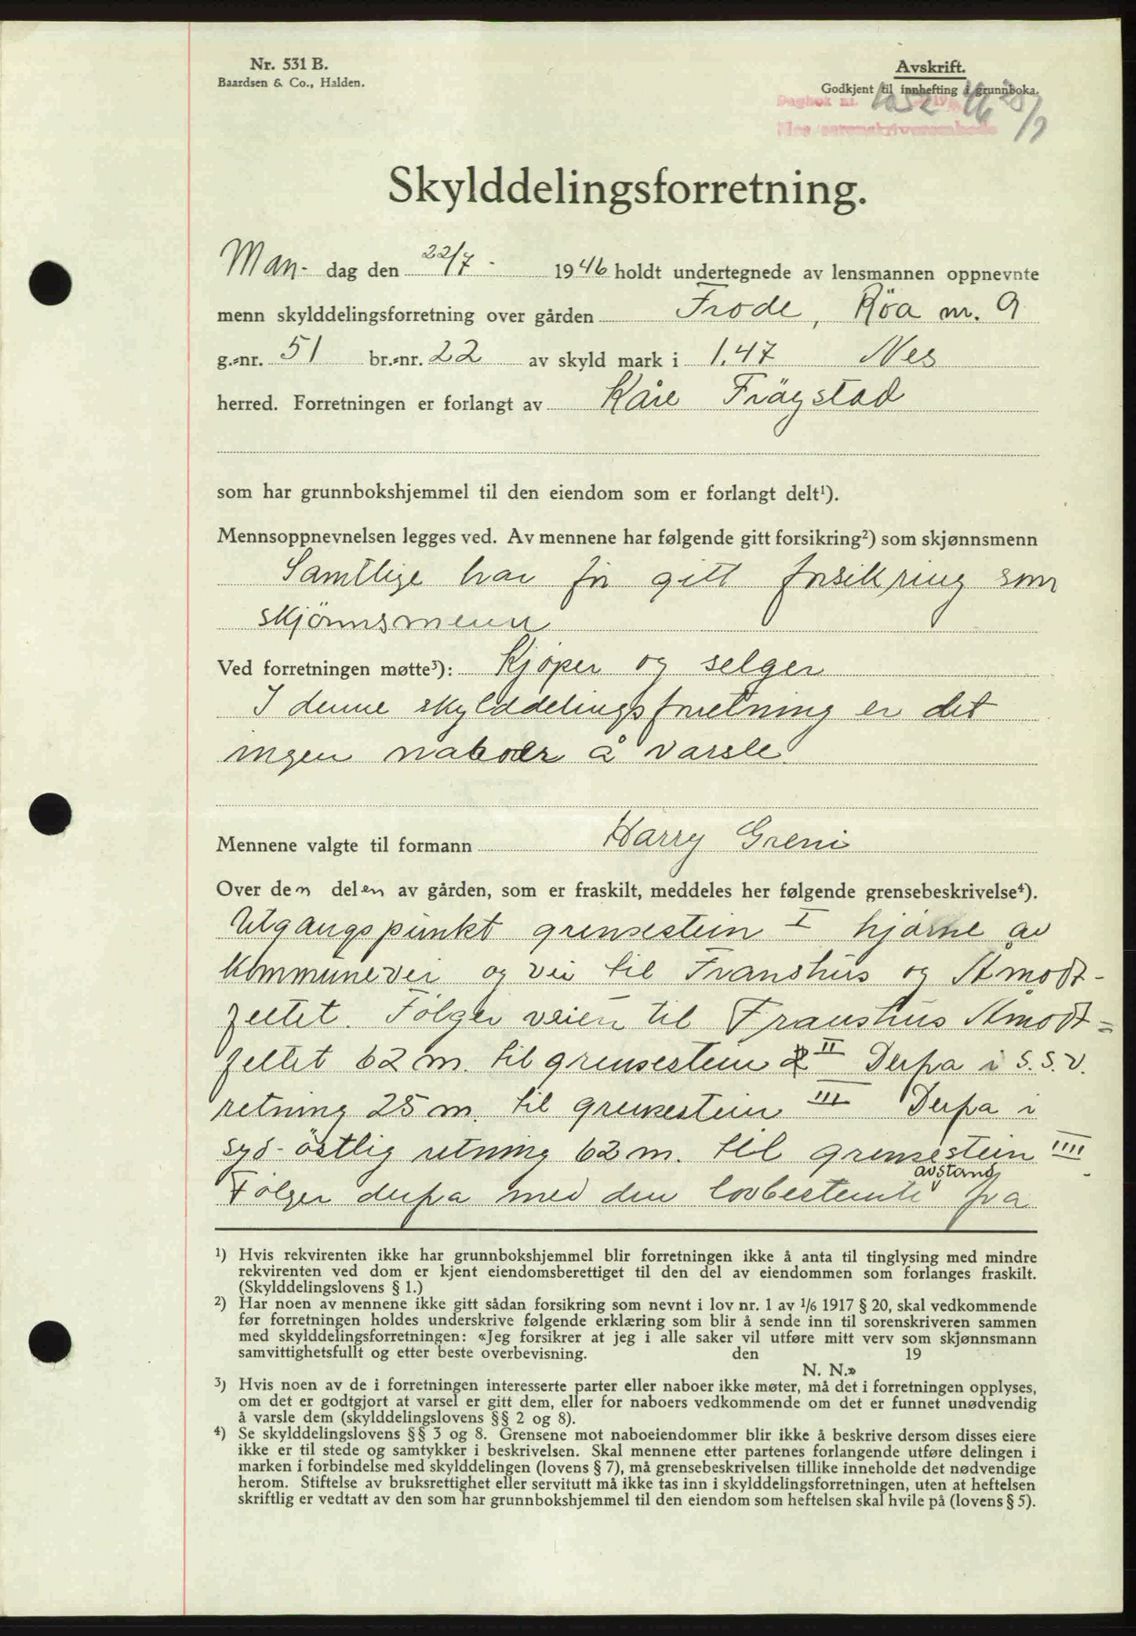 Nr. 531 B.
Baardsen & Co., Halden.
Avskrift.
Godkjent til innhefting i grunnboka.
Dagbok nr. 1052 19 46 25/7
Nes sorenskriverembede
Skylddelingsforretning.
Man- dag den 22/7 - 1946 holdt undertegnede av lensmannen oppnevnte
menn skylddelingsforretning over gården Frode, Röa nr. 9
g.-nr. 51 br.-nr. 22 av skyld mark i 1.47 Nes
herred. Forretningen er forlangt av Kåre Frägstad
som har grunnbokshjemmel til den eiendom som er forlangt delt¹).
Mennsoppnevnelsen legges ved. Av mennene har følgende gitt forsikring²) som skjønnsmenn
Samtlige har før gitt forsikring som
skjönnsmenn
Ved forretningen møtte³): Kjöper og selger
I denne skylddelingsforretning er det
ingen naboer å varsle
Mennene valgte til formann Harry Greni
Over den delen av gården, som er fraskilt, meddeles her følgende grensebeskrivelse⁴).
Utgangspunkt grensestein I hjørne av
kommunevei og vei til Franshus og Åmodt-
feltet. Fölger veien til Franshus Åmodt=
feltet 62 m. til grensestein II Derfra i S.S.V.
retning 25 m. til grensestein III Derfra i
syd-östlig retning 62 m. til grensestein IIII
avstand
Fölger derfra med den lovbestemte fra
¹) Hvis rekvirenten ikke har grunnbokshjemmel blir forretningen ikke å anta til tinglysing med mindre
rekvirenten ved dom er kjent eiendomsberettiget til den del av eiendommen som forlanges fraskilt.
(Skylddelingslovens § 1.)
²) Har noen av mennene ikke gitt sådan forsikring som nevnt i lov nr. 1 av 1/6 1917 § 20, skal vedkommende
før forretningen holdes underskrive følgende erklæring som blir å sende inn til sorenskriveren sammen
med skylddelingsforretningen: «Jeg forsikrer at jeg i alle saker vil utføre mitt verv som skjønnsmann
samvittighetsfullt og etter beste overbevisning. den 19
N. N.»
³) Hvis noen av de i forretningen interesserte parter eller naboer ikke møter, må det i forretningen opplyses,
om det er godtgjort at varsel er gitt dem, eller for naboers vedkommende om det er funnet unødvendig
å varsle dem (skylddelingslovens §§ 2 og 8).
⁴) Se skylddelingslovens §§ 3 og 8. Grensene mot naboeiendommer blir ikke å beskrive dersom disses eiere
ikke er til stede og samtykker i beskrivelsen. Skal mennene etter partenes forlangende utføre delingen i
marken i forbindelse med skylddelingen (lovens § 7), må grensebeskrivelsen tillike inneholde det nødvendige
herom. Stiftelse av bruksrettighet eller servitutt må ikke tas inn i skylddelingsforretningen, uten at heftelsen
skriftlig er vedtatt av den som har grunnbokshjemmel til den eiendom som heftelsen skal hvile på (lovens § 5).